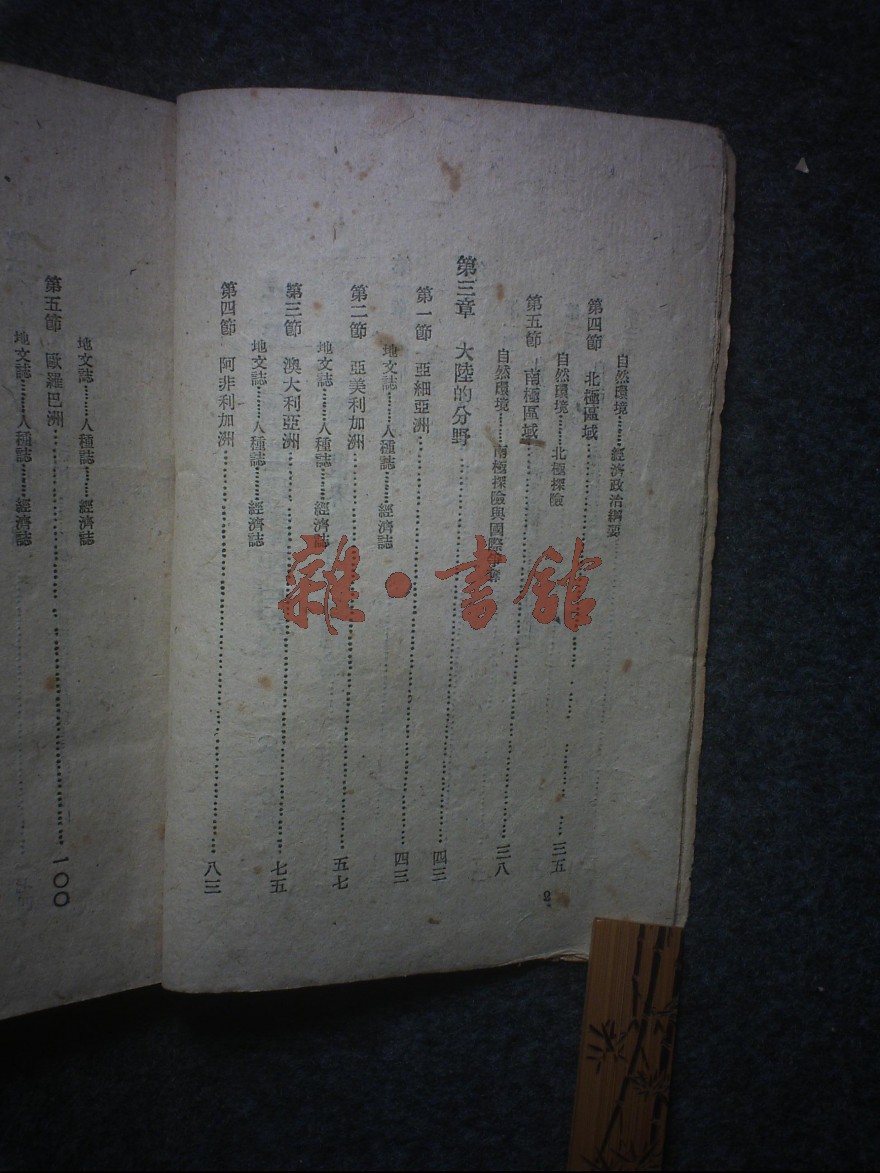 自然環境………經濟政治綱要
第四節 北極區域……三五
自然環境………北極探險
第五節 南極區域……三八
自然環境………南極探險與國際
第三章 大陸的分野……四三
第一節 亞細亞洲……四三
地文誌………人種誌………經濟誌
第二節 亞美利加洲……五七
地文誌………人種誌………經濟誌
第三節 澳大利亞洲……七五
地文誌………人種誌………經濟誌
第四節 阿非利加洲……八三
地文誌………人種誌………經濟誌
第五節 歐羅巴洲……一〇〇
地文誌………人種誌………經濟誌
2
雜·書館